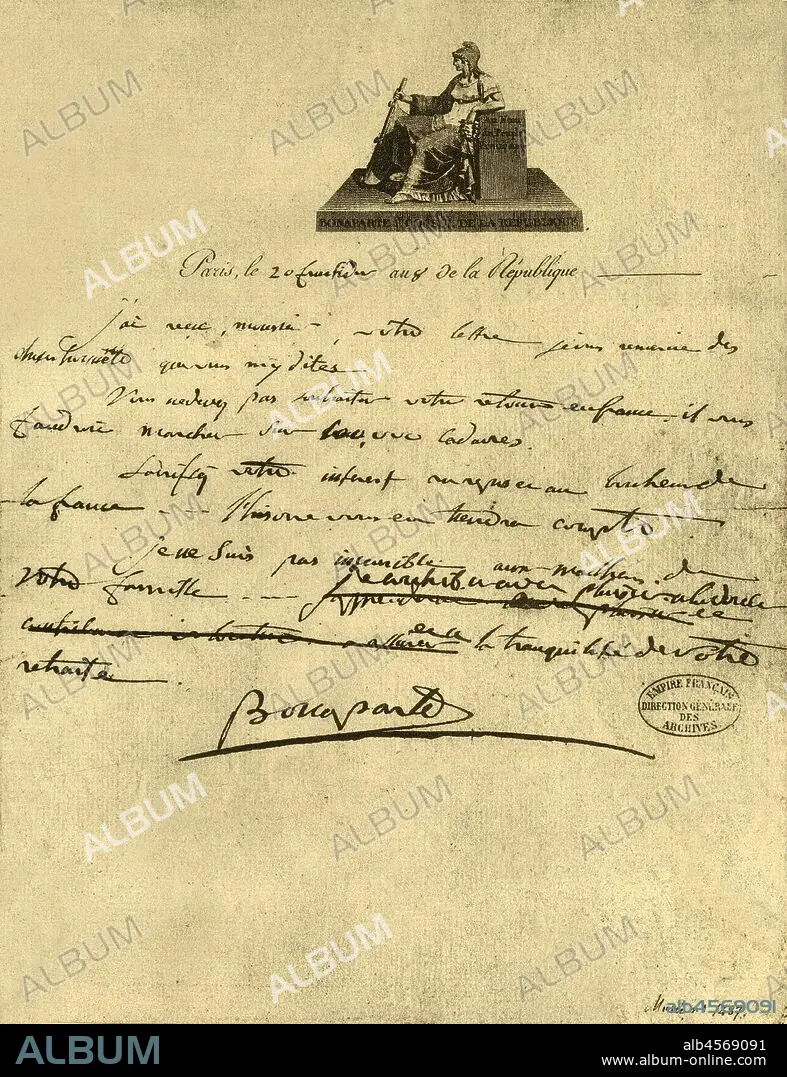 Au Nom
du Peuple
Français
BONAPARTE DE LA RÉPUBLIQUE
Paris, le 20 fructidor an 8 de la République
j'ai reçu, monsieur, votre lettre je vous remercie des
choses honnêtes que vous my dites
Vous ne devez pas souhaiter votre retour en france. il vous
faudroit marcher sur 100,000 cadavres.
Sacrifiez votre interest au repos et au bonheur de
la france --- l'histoire vous en tiendra compte
Je ne suis pas insensible aux malheurs de
votre famille ---- je contribuerai avec plaisir à la douceur
et a la tranquilité de votre
retraite.
Bonaparte
EMPIRE FRANÇAIS
DIRECTION GÉNÉRALE
DES
ARCHIVES
ALBUM
alb4569091
ALBUM
alb4569091
www.album-online.com